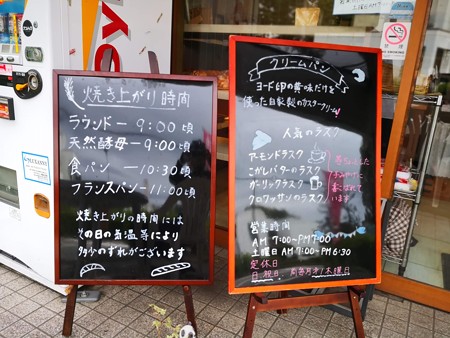 焼き上がり時間
ラウンドー9:00頃
天然酵母ー9:00頃
食パンー10:30頃
フランスパンー11:00頃
焼き上がりの時間には
その日の気温等により
多少のずれがございます
クリームパン
ヨード卵の黄味だけを
使った自家製のカスタークリーム!
人気のラスク
アーモンドラスク
こがしバターのラスク
ガーリックラスク
クロワッサンのラスク
営業時間
AM 7:00~PM 7:00
土曜日 AM 7:00~PM 6:30
定休日
日.祝日.
木曜日